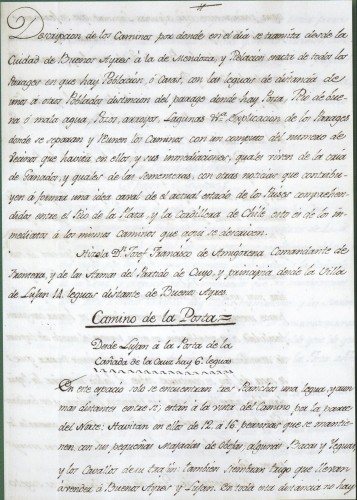 Descripcion de los Caminos por donde en el dia se transita desde la
Ciudad de Buenos Ayres á la de Mendoza, y Relacion exacta de todos los
Parages en que hay Poblacion, ó Casas, con las leguas de distancia de
unos á otros Poblados distincion del parage donde hay Posta, Rio de bue-
na ó mala agua, Pozo, arroyos, Lagunas &ª. Explicacion de los Parages
donde se separan y Reunen los Caminos con un computo del numero de
Vecinos que havita en ellos, y sus inmediaciones, quales viven de la cria
de Ganados, y quales de las sementeras, con otras noticias que contribu-
yen á formar una idea cabal de el actual estado de los Paises comprehen-
didos entre el Rio de la Plata, y la Cordillera de Chile esto es de los in-
mediatos á los mismos caminos que aqui se describen.
Hizola Dⁿ. Josef Francisco de Amigorena Comandante de
Frontera, y de las Armas del Partido de Cuyo, y principia desde la Villa
de Lujan 14 leguas distante de Buenos Ayres.
Camino de la Posta =
Desde Lujan á la Posta de la
Cañada de la Cruz hay 6. leguas
En este espacio solo se encuentran tres Ranchos una legua, y aun
mas distantes entre si; estan á la vista del Camino por la parte
del Norte: Havitan en ellos de 12 á 16 personas que se mantie-
nen con sus pequeñas Majadas de Obejas algunas Bacas y Yeguas
y los Cavallos de su trajin: Tambien siembran trigo que llevan
á vender á Buenos Ayres y Lujan. En toda esta distancia no hay